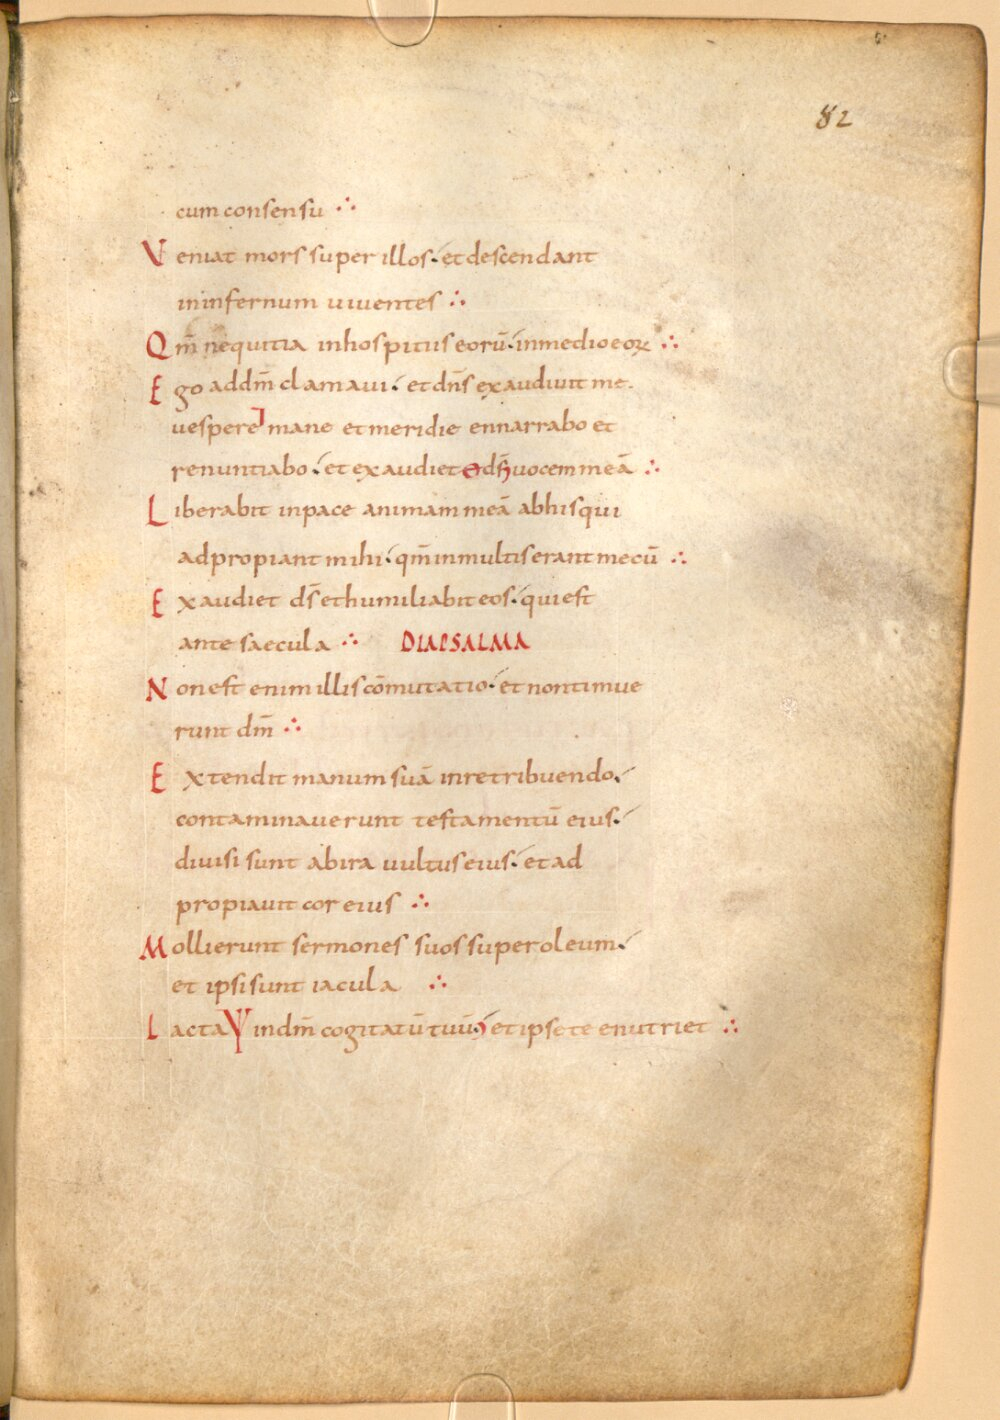 82
cum consensu ∴
Veniat mors super illos. et descendant
in infernum viventes ∴
Qm̄ nequitia in hospitiis eorū. in medio eoꝝ ∴
Ego ad dm̄ clamavi. et dn̄s exaudivit me.
vespere mane et meridie ennarrabo et
renuntiabo. et exaudiet ds̄ vocem meā ∴
Liberabit in pace animam meā ab his qui
adpropiant mihi. qm̄ in multis erant mecū ∴
Exaudiet ds̄ et humiliabit eos. qui est
ante saecula ∴ DIAPSALMA
Non est enim illis cōmutatio. et non timue
runt dm̄ ∴
Extendit manum suā in retribuendo.
contaminaverunt testamentū eius.
divisi sunt ab ira vultus eius. et ad
propiavit cor eius ∴
Mollierunt sermones suos super oleum.
et ipsi sunt iacula ∴
Iacta in dm̄ cogitatū tuū. et ipse te enutriet ∴